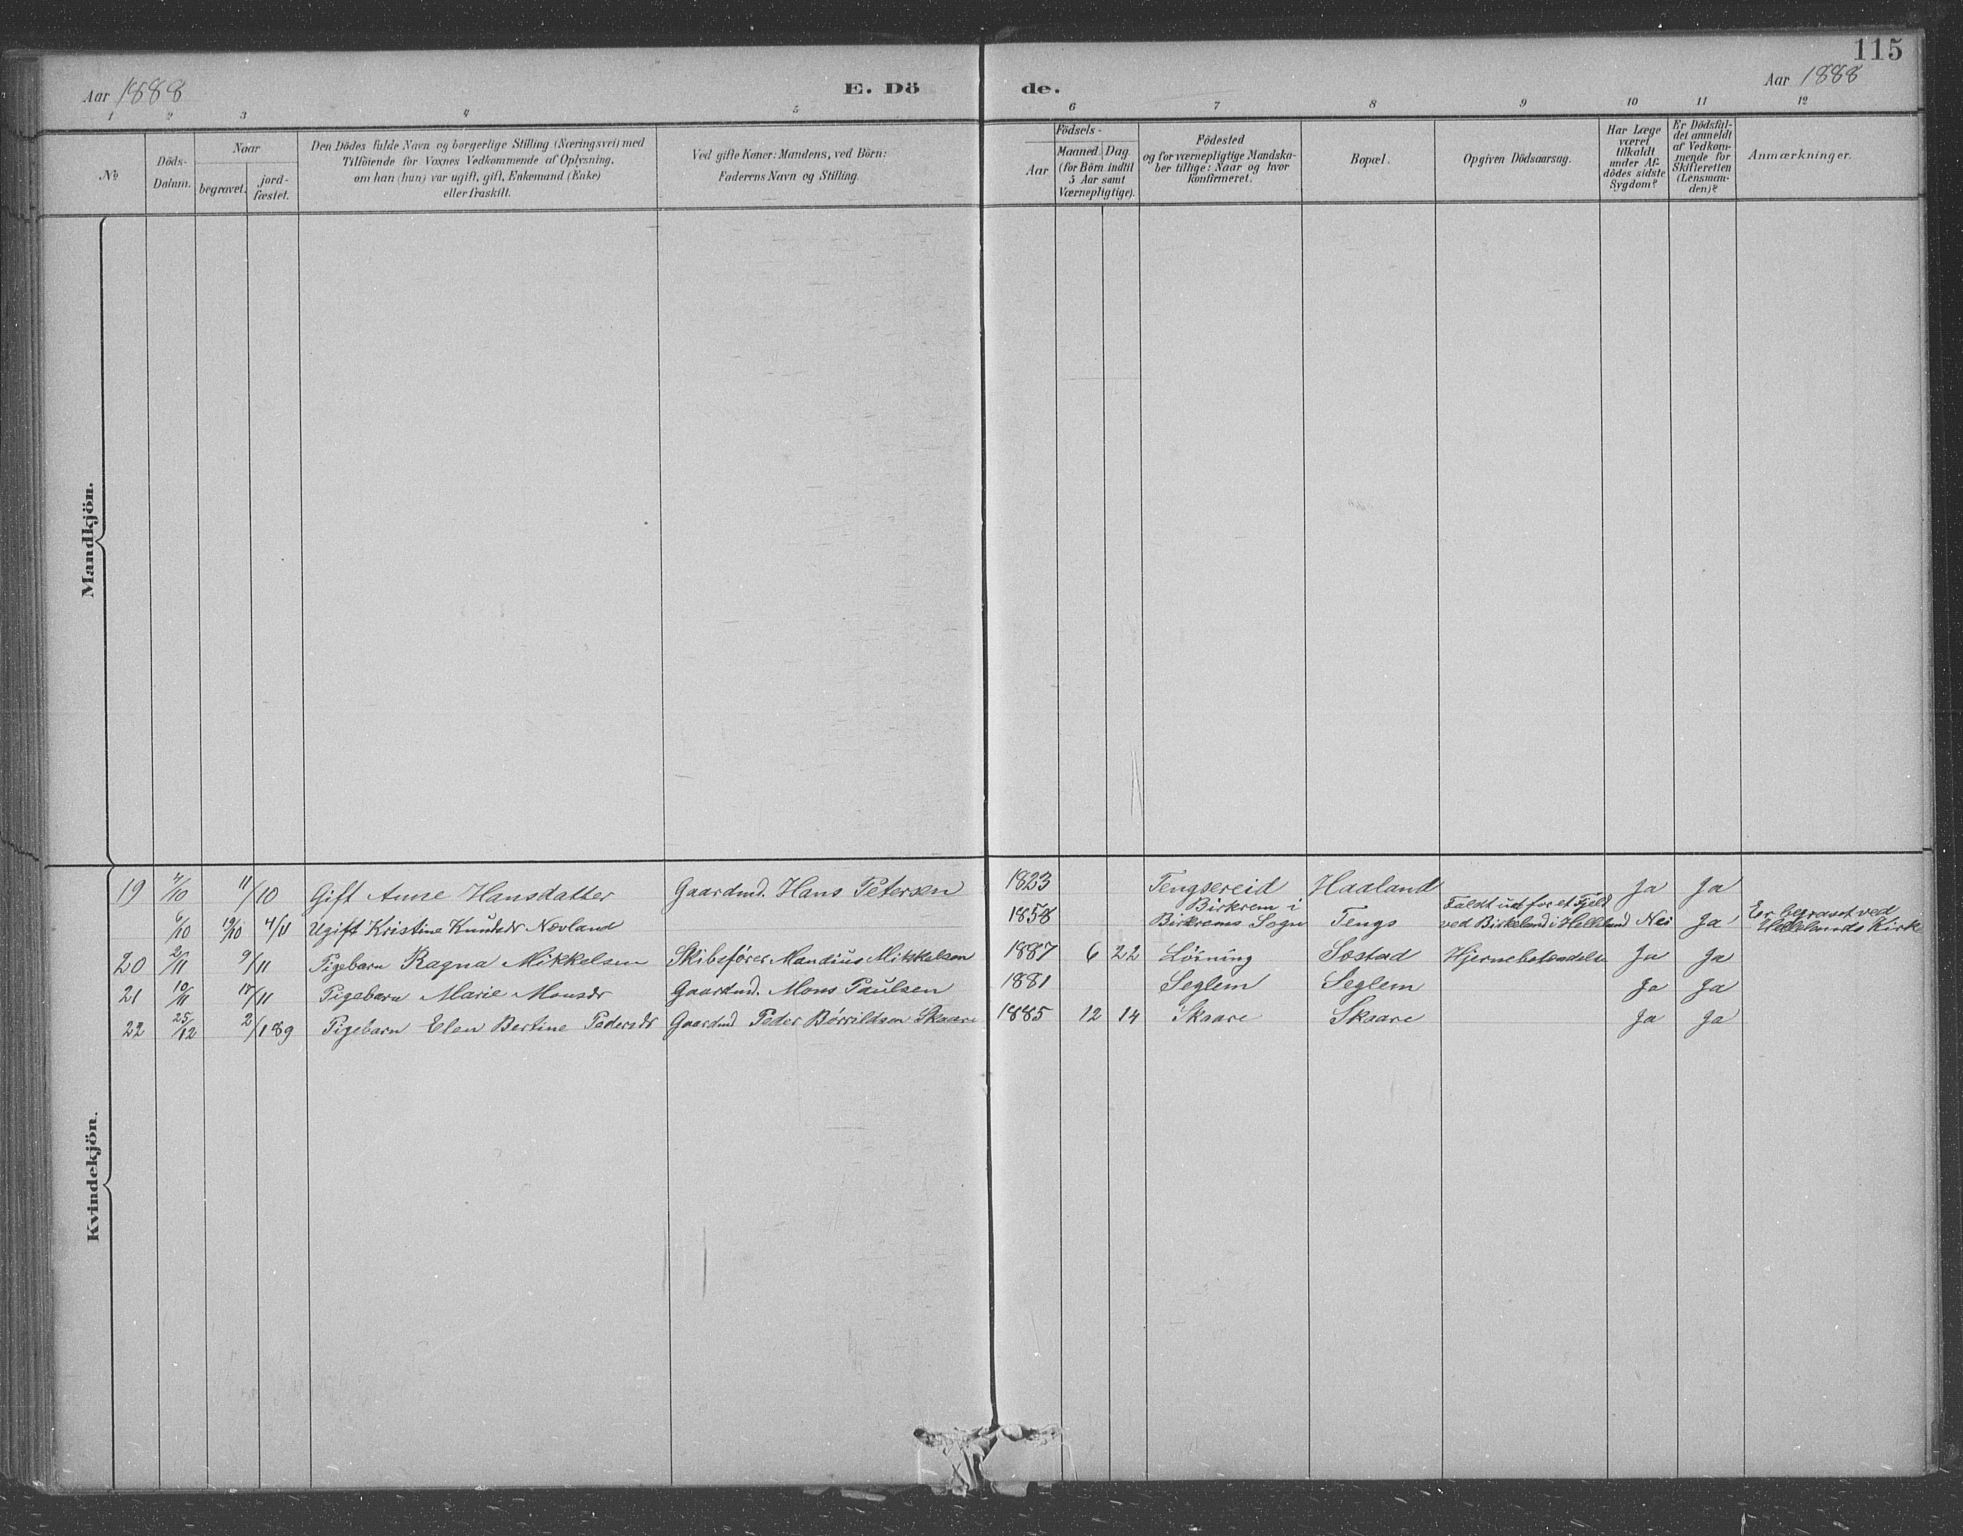 115
Aar 1888 E. Dö de. Aar 1888
1 2 3 4 5 6 7 8 9 10 11 12
No
Döds-
Datum.
Naar
begravet.
jord-
fæstet.
Den Dödes fulde Navn og borgerlige Stilling (Næringsvei) med
Tilföiende for Voxnes Vedkommende af Oplysning,
om han (hun) var ugift, gift, Enkemand (Enke)
eller fraskilt.
Ved gifte Koner: Mandens, ved Börn:
Faderens Navn og Stilling.
Födsels-
Aar
Maaned. Dag
(for Börn indtil
5 Aar samt
Værnepligtige).
Födested
og for værnepligtige Mandska-
ber tillige: Naar og hvor
konfirmeret.
Bopæl.
Opgiven Dödsaarsag.
Har Læge
været
tilkaldt
under Af-
dödes sidste
Sygdom?
Er Dödsfal-
det anmeldt
af Vedkom-
mende for
Skifteretten
(Lensman-
den)?
Anmærkninger.
Mandkjön.
Kvindekjön.
19 4/10 11/10 Gift Anne Hansdatter Gaardmd. Hans Petersen 1823 Tengsereid Haaland Ja Ja
6/10 10/10 4/11 Ugift Kristine Knudsdr Nævland 1858 Birkrem i
Birkrems Sogn Tengs Faldt ud for et Fjeld
ved Birkeland i Helleland Nei Ja Er begravet ved
Hellelands Kirke
20 2/11 9/11 Pigebarn Ragna Mikkelsen Skibsfører Mandius Mikkelsen 1887 6 22 Løvning Sostad Hjernebetændelse Ja Ja
21 10/11 /11 Pigebarn Marie Monsdr Gaardmd. Mons Paulsen 1881 Seglem Seglem Ja Ja
22 25/12 2/1 89 Pigebarn Elen Bertine Pedersdr Gaardmd Peder Børrildsen Skaare 1885 12 14 Skaare Skaare Ja Ja